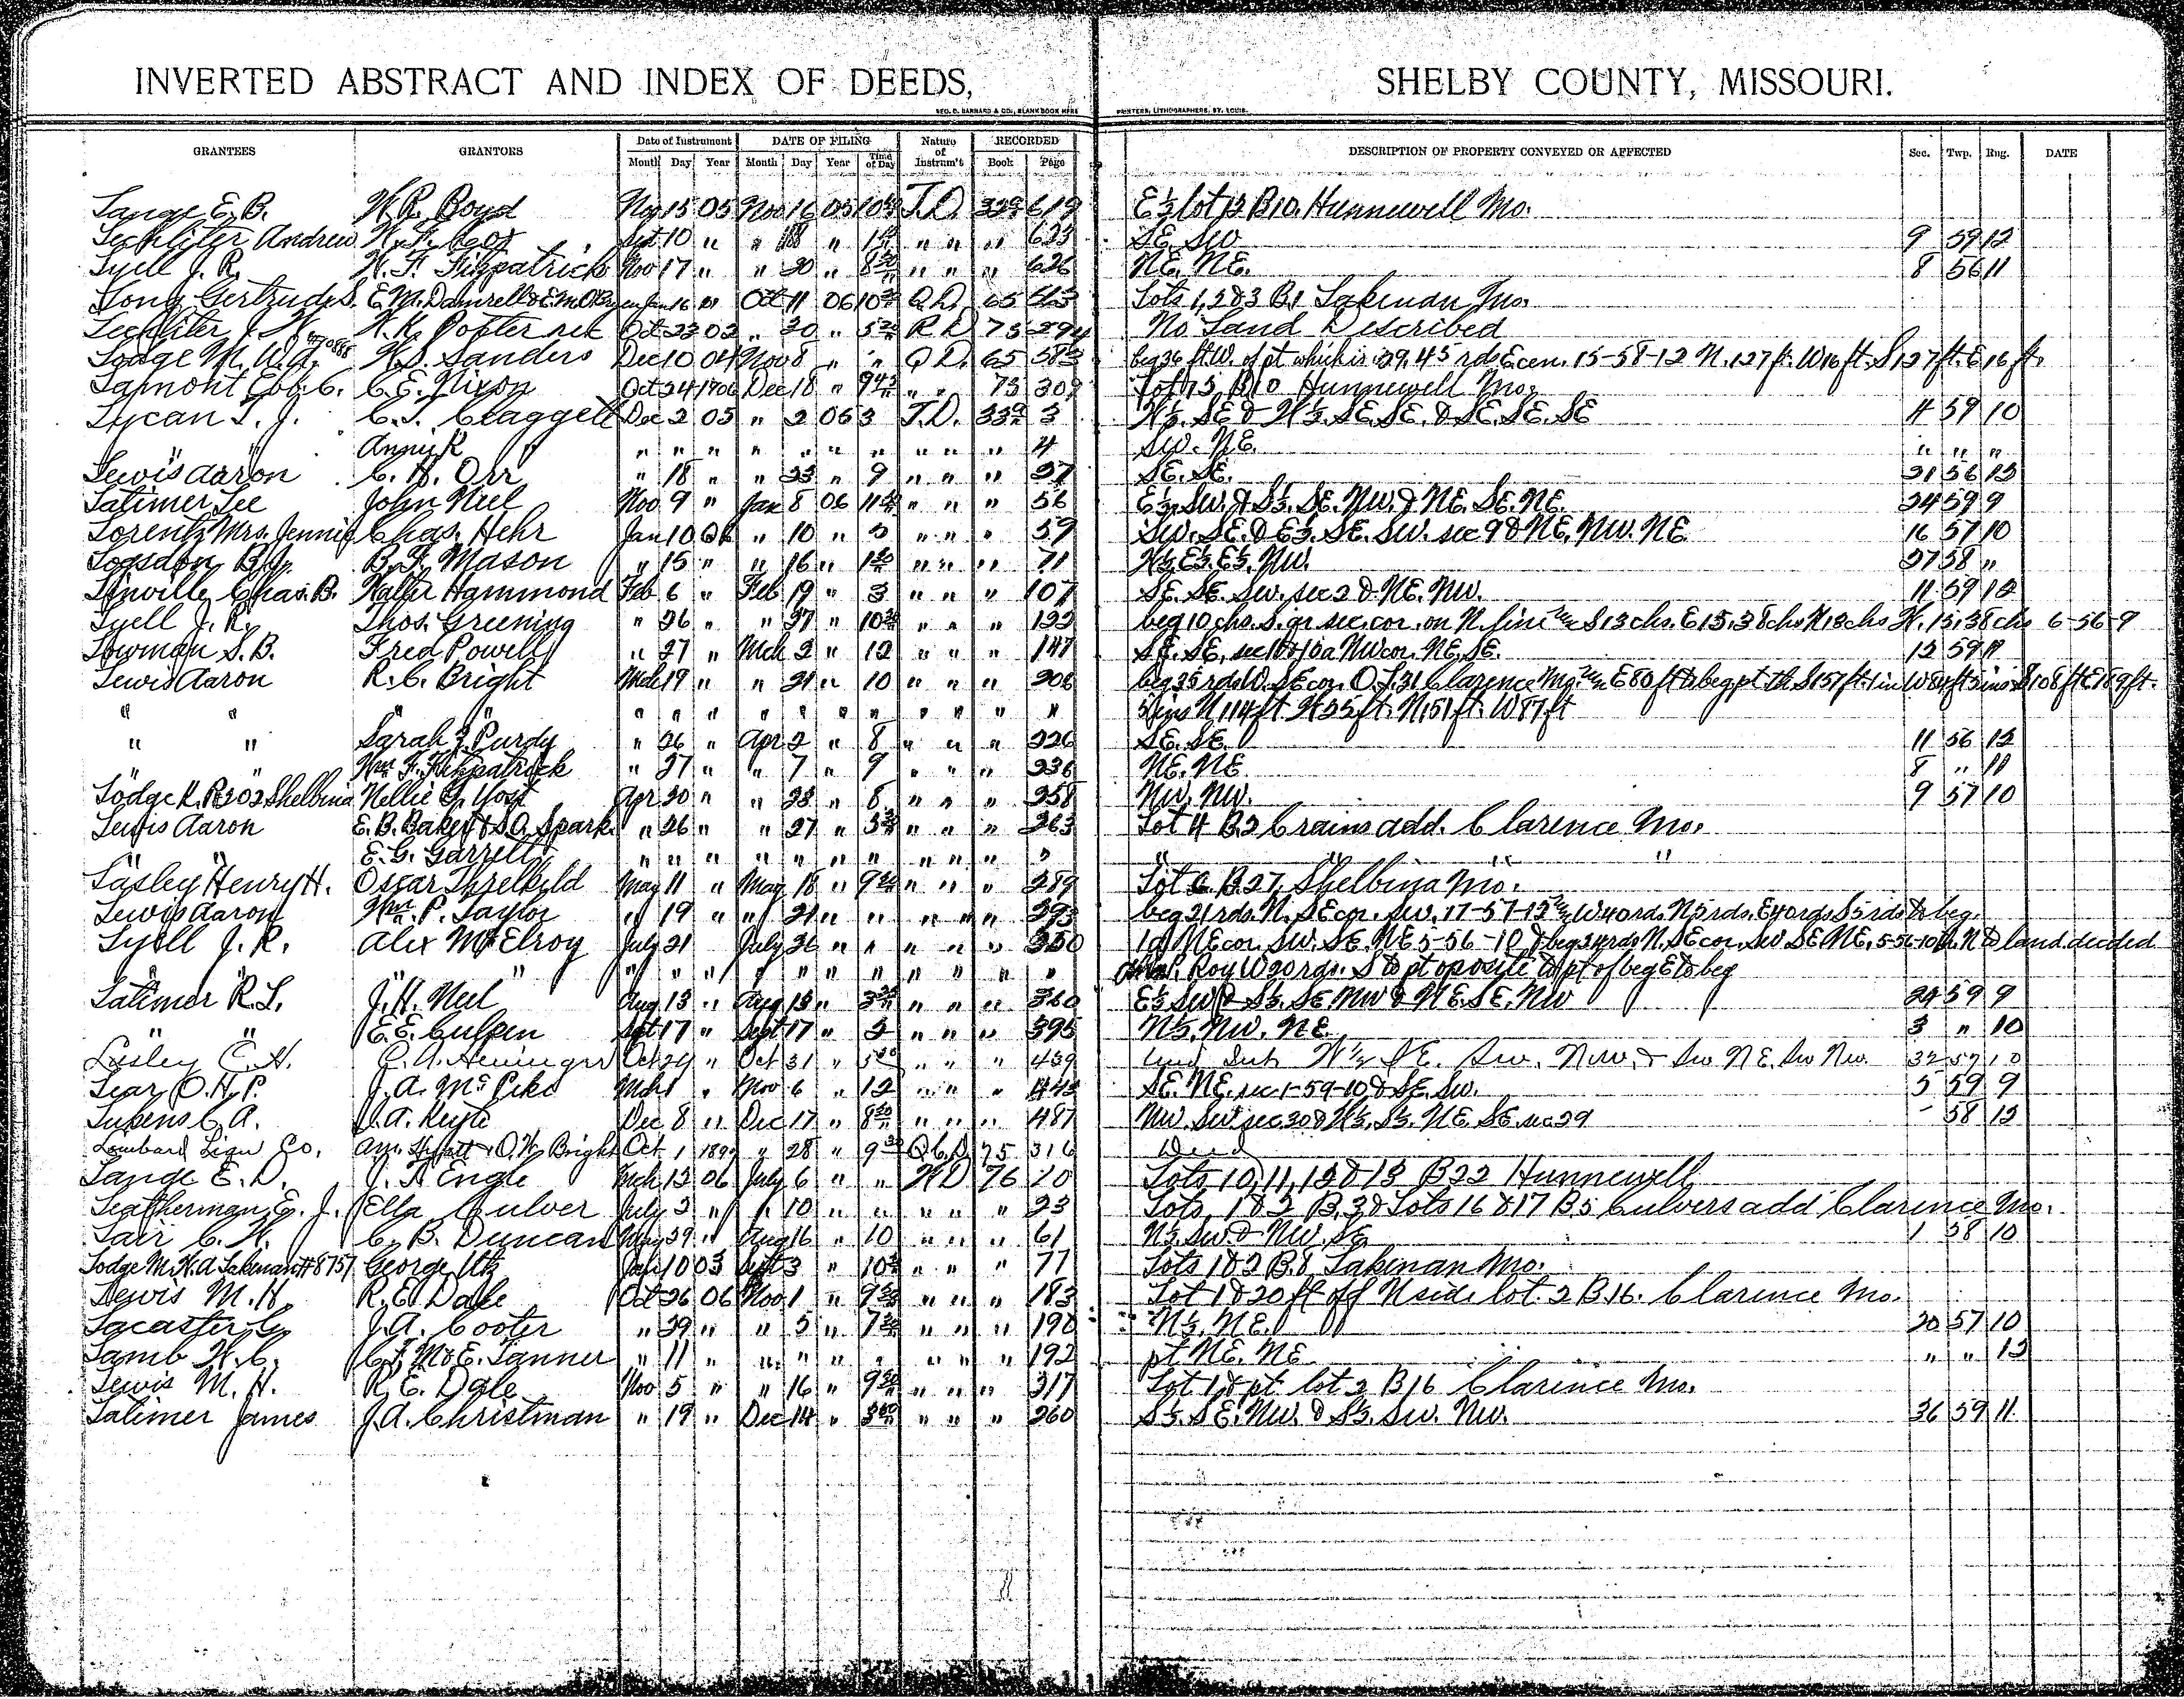 INVERTED ABSTRACT AND INDEX OF DEEDS, SHELBY COUNTY, MISSOURI.
GEO. D. BARNARD & CO., BLANK BOOK MFRS PRINTERS, LITHOGRAPHERS, ST. LOUIS.
GRANTEES GRANTORS Date of Instrument DATE OF FILING Nature of Instrum't RECORDED DESCRIPTION OF PROPERTY CONVEYED OR AFFECTED Sec. Twp. Rng. DATE
Month Day Year Month Day Year Time of Day Book Page
Lange E.B. W.R. Boyd Nov 15 05 Nov 16 05 T.D. 619 E½ lot 13 B10. Hunnewell Mo.
Lechliter Andrew W.F. Cox Sept 10 " " 18 " " " " 623 SE. SW 9 59 12
Lyell J.R. W.F. Fitzpatrick Nov 17 " " 20 " 8 30 " " " 626 NE. NE. 8 56 11
Long Gertrude S. Oct 11 06 Q.D. 65 Lots 1, 2 & 3 B.1 Lakenan Mo.
Lechliter J. W. Oct 23 02 " 30 " R D 75 294 No Land Described
Lodge M.W.A. W.S. Sanders Dec 10 04 Nov 8 " " Q D. 65 583 beg 26 ft W. of pt which is 29.45 rds E cen. 15-58-12 N. 127 ft. W 16 ft. S 127 ft. E 16 ft.
Lamont C. C.E. Nixon Oct 24 1906 Dec 18 " 9 45 " " 75 309 Lot 13 B10 Hunnewell Mo.
Lycan T. J. C.T. Claggett Dec 2 05 " 2 05 3 T.D. 3 W½. SE & W½. SE. SE. & SE. SE. SE 4 59 10
" " Anny R " " " " " " " " " " 4 SW. NE. " " "
Lewis Aaron C. H. Orr " 18 " " 23 " 9 " " " 27 SE. SE. 21 56 12
Latimer Lee John Neel Nov 9 " Jan 8 06 " " " 56 E½. SW. & S½. SE. NW. & NE. SE. NE. 24 59 9
Lorentz Mrs. Jennie Chas. Hehr Jan 10 06 " 10 " 5 " " " 59 SW. SE. & E½. SE. SW. sec 9 & NE. NW. NE 16 57 10
Logsdon B.J. B.F. Mason " 15 " " 16 " " " " 71 W½. E½. E½. NW. 27 58 "
Linville Chas. B. Walter Hammond Feb 6 " Feb 19 " 3 " " " 107 SE. SE. SW. sec 2 & NE. NW. 11 59 12
Lyell J.R. Thos. Greening " 26 " " 27 " 10 30 " " " 122 beg 10 chs. S. qr sec. cor. on N. line S 13 chs. E 15.38 chs N 13 chs W. 15.38 chs 6-56-9
Lowman S.B. Fred Powell " 27 " Mch 2 " 12 " " " 147 SE. SE, sec NW cor. NE. SE. 12 59 11
Lewis Aaron R.C. Bright Mch 19 " " 21 " 10 " " " 206 beg 35 rds W. SE cor. O.L. 31 Clarence Mo. E 80 ft to beg pt th S 157 ft 1 in W 84 ft 5 ins S 108 ft E 189 ft.
" " " " " " " " " " " " " " " 5 ins N 114 ft. W 25 ft. N 151 ft. W 87 ft
" " Sarah J. Purdy " 26 " Apr 2 " 8 " " " 226 SE. SE. 11 56 12
" " Wm. F. Fitzpatrick " 27 " " 7 " 9 " " " 236 NE. NE 8 " 11
Lodge K.P. 202 Shelbina Nellie G. Yost Apr 20 " " 23 " 8 " " " 258 NW. NW. 9 57 10
Lewis Aaron E.B. Baker & S.A. Spark " 26 " " 27 " " " " 263 Lot 4 B.2 Crains add. Clarence Mo.
" " E.G. Garrell " " " " " " " " " " " " " " "
Lasley Henry H. Oscar Threlkeld May 11 " May 18 " 9 30 " " " 289 Lot 6 B.27, Shelbina Mo.
Lewis Aaron Wm. P. Taylor " 19 " " 21 " " " " " 293 beg 21 rds. N. SE cor. SW. 17-57-12 W 40 rds. N 5 rds. E 40 rds S 5 rds to beg.
Lyell J. R. Alex McElroy July 21 July 26 " " " " " 350 1a NE cor. SW. SE. NE 5-56-10 & beg 24 rds N. SE cor. SW SE NE, 5-56-10 th. N to land deeded
" " " " " " " " " " " " " " P. Roy W 20 rds. S to pt oposite to pt of beg E to beg
Latimer R.L. J.H. Neel Aug 13 " Aug 13 " " " " 360 E½ SW & S½. SE. NW & NE. SE. NW 24 59 9
" " E.E. Culpen Sept 17 " Sept 17 " 2 " " " 395 N½. NW. NE. 3 " 10
Lasley C. H. Oct 24 " Oct 31 " " " " 439 und int W½ SE. SW. NW. & SW NE. SW NW. 32 57 10
Lear O.H.P. J.A. McPike Mch 1 " Nov 6 " 12 " " " 443 SE. NE. sec 1-59-10 & SE. SW. 5 59 9
Lukens C. A. Dec 8 " Dec 17 " 8 30 " " " 487 NW. SW sec 30 & W½. S½. NE SE. sec 29 - 58 12
Lombard Liqu Co. Am. Hyatt & O.W. Bright Oct 1 " 28 " 9 30 Q C.D. 75 316 Deed
Lange E. D. J. A Engle Mch 13 06 July 6 " " W D 76 10 Lots 10, 11, 12 & 13 B 22 Hunnewell
Leatherman E. J. Ella Culver July 2 " " 10 " " " " " 23 Lots, 1 & 2 B. 3 & Lots 16 & 17 B 5 Culvers add Clarence Mo.
Lair C. H. C. B. Duncan May 29 " Aug 16 " 10 " " " 61 N½. SW. & NW. SE 1 58 10
Lodge M.W.A Lakenan #8757 George Utz Jan 10 03 Sept 3 " " " " 77 Lots 1 & 2 B. 8 Lakenan Mo.
Lewis M. H R.E. Dale Oct 26 06 Nov 1 " 9 30 " " " 183 Lot 1 & 20 ft off N side lot 2 B. 16. Clarence Mo.
Lacaster G. J.A. Cooter " 29 " " 5 " 7 30 " " " 190 N½. NE. 20 57 10
Lamb W.C. C.F. McE. Tanner " 11 " " " " " " " " 192 pt NE. NE " " 12
Lewis M. H. R. E. Dale Nov 5 " " 16 " 9 30 " " " 317 Lot 1 & pt lot 2 B 16 Clarence Mo.
Latimer James J.A. Christman " 19 " Dec 14 " " " " 260 S½. SE. NW. & S½. SW. NW. 36 59 11